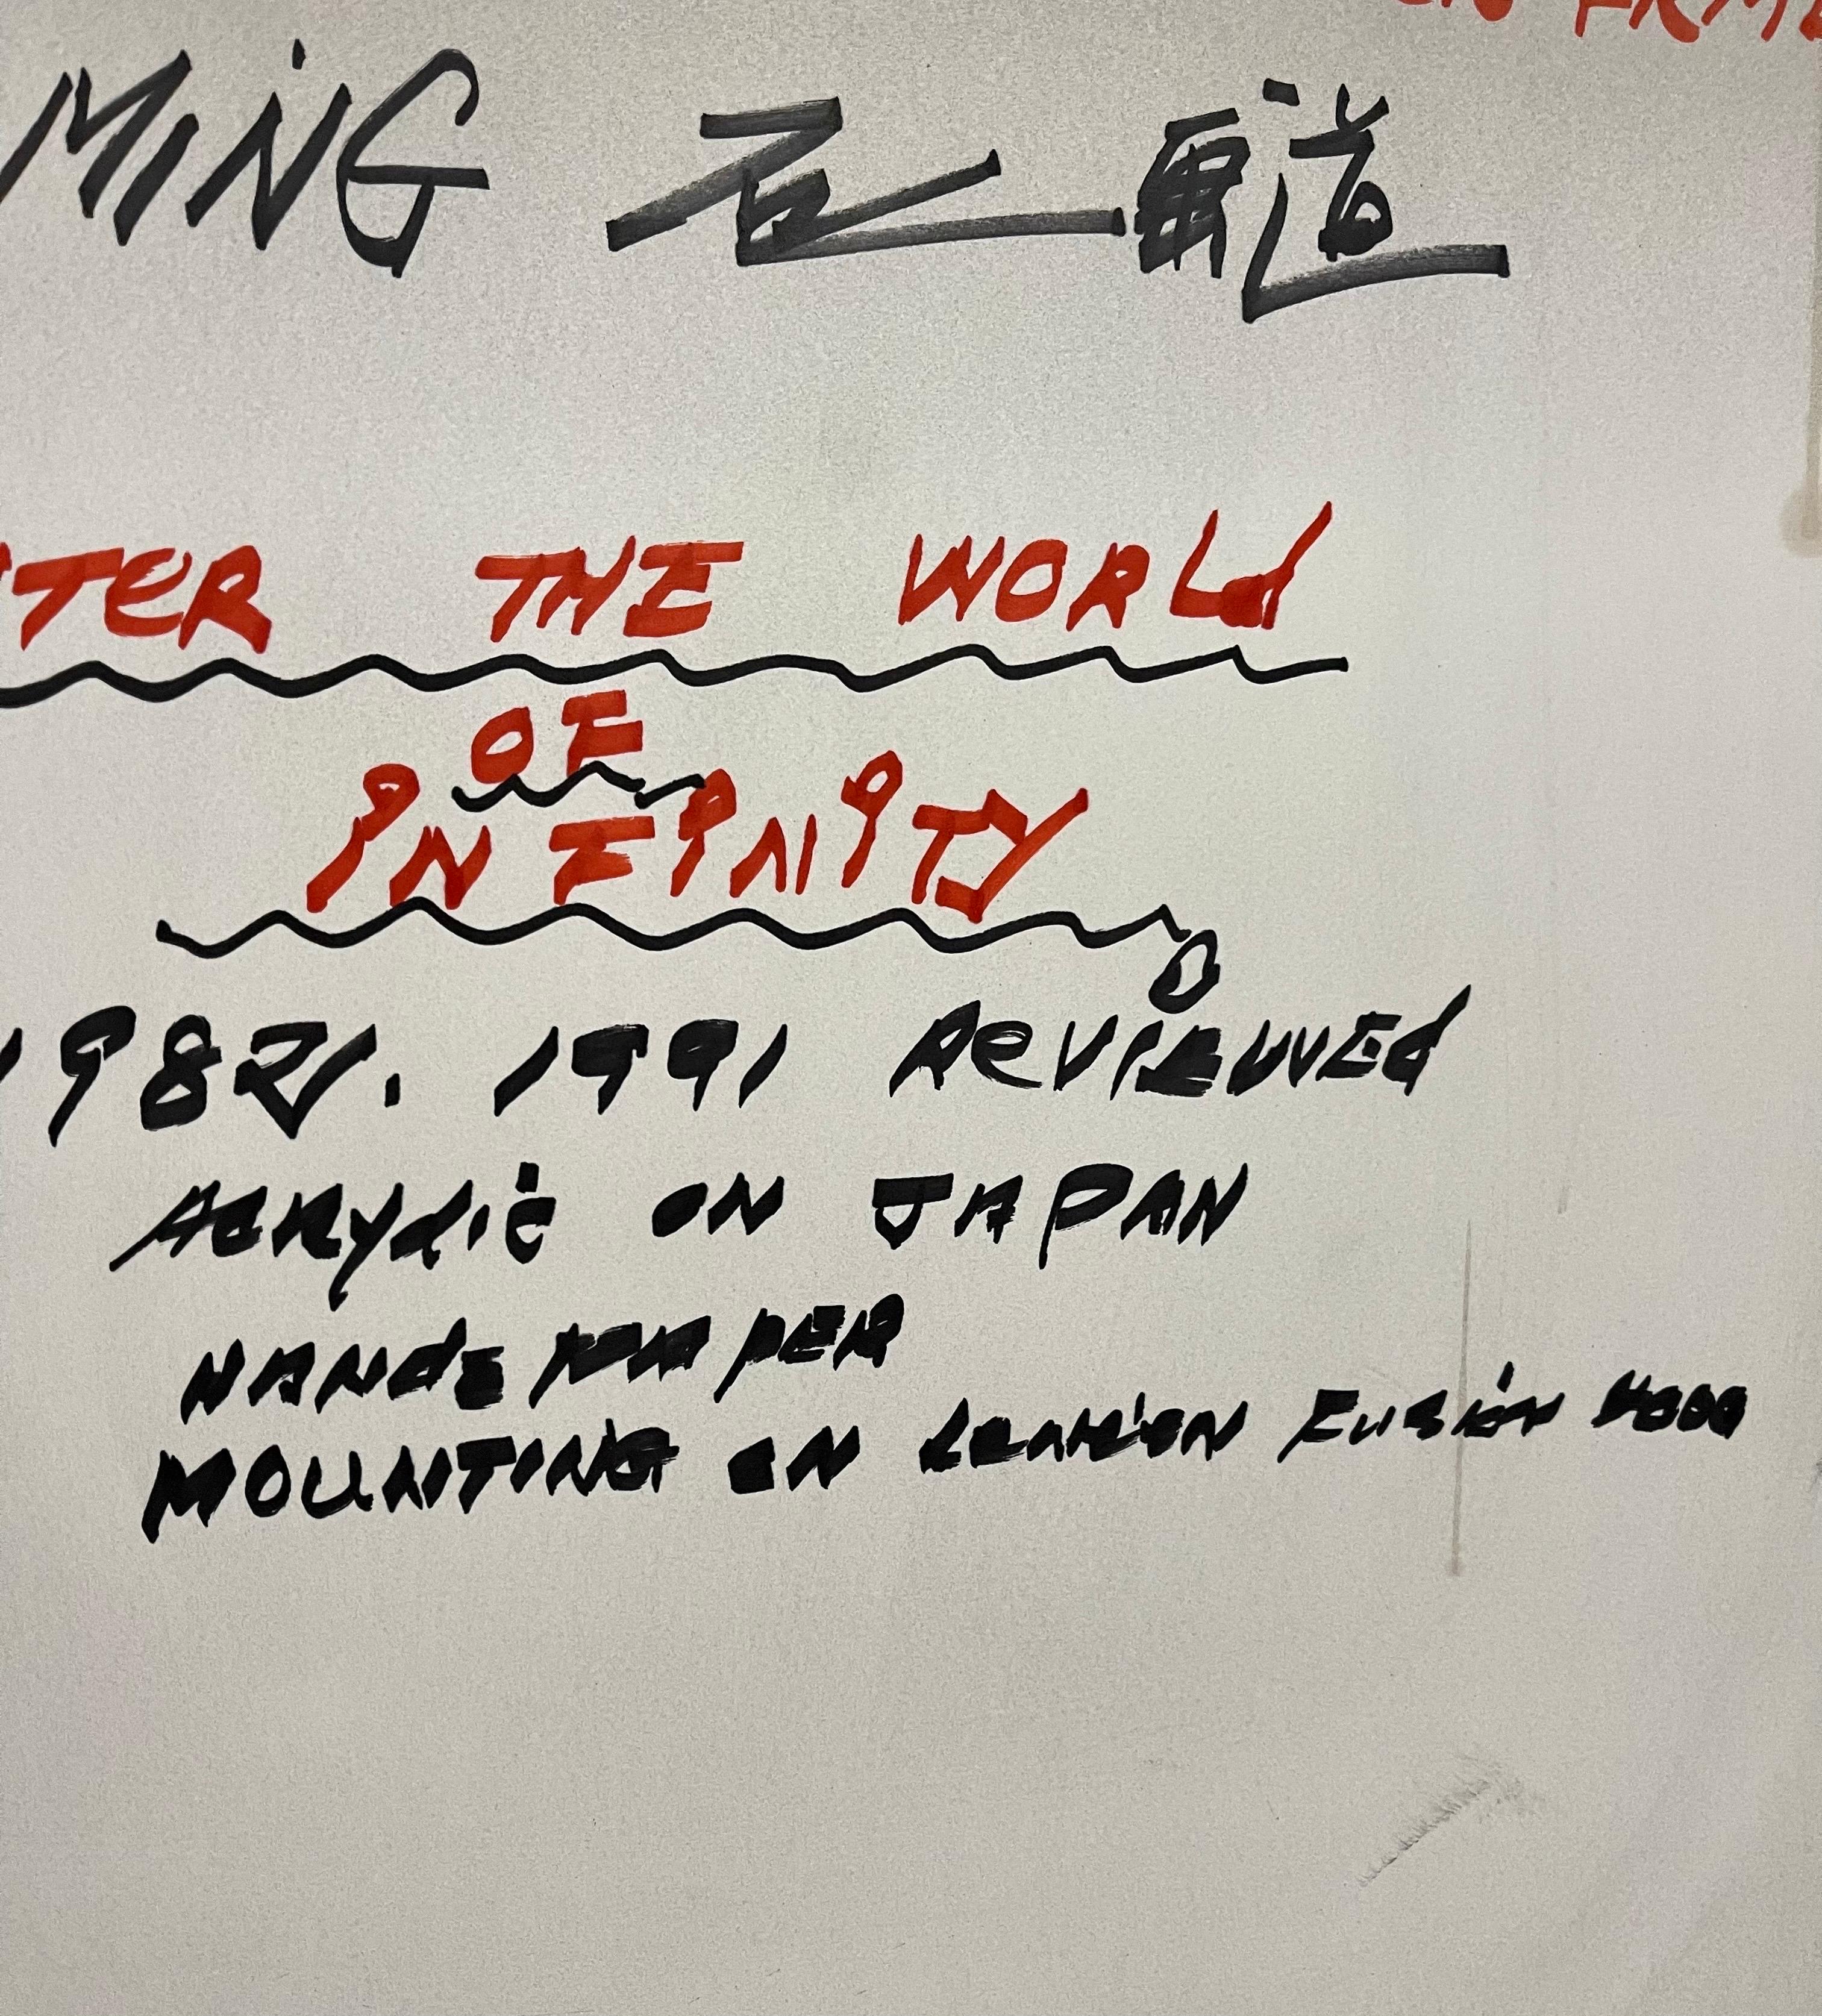 MING
TER THE WORLd
OF
INFINITY
1982. 1991 ReVIEWED
ACRYLIC ON JAPAN
HANdE PAPER
MOUNTING ON FUSION